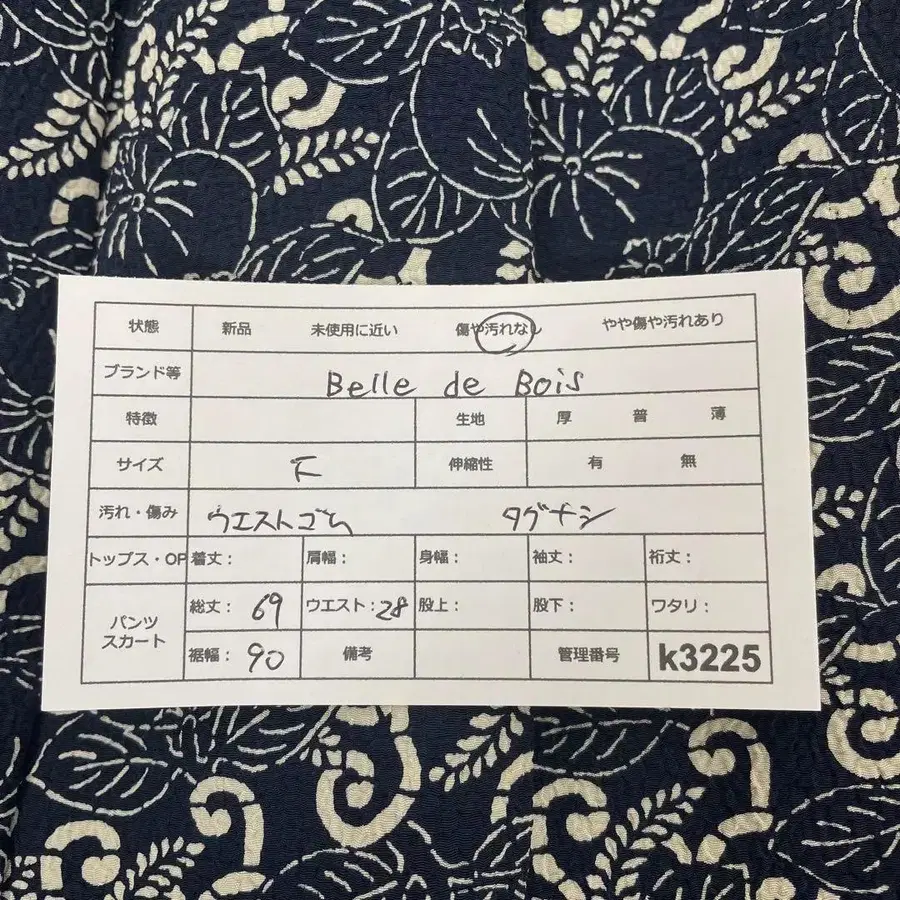 状態 新品 未使用に近い 傷や汚れなし やや傷や汚れあり
ブランド等 Belle de Bois
特徴 生地 厚 普 薄
サイズ F 伸縮性 有 無
汚れ・傷み ウエストゴム タグナシ
トップス・OP 着丈: 肩幅: 身幅: 袖丈: 裄丈:
パンツ スカート 総丈: 69 ウエスト: 28 股上: 股下: ワタリ:
裾幅: 90 備考 管理番号 k3225